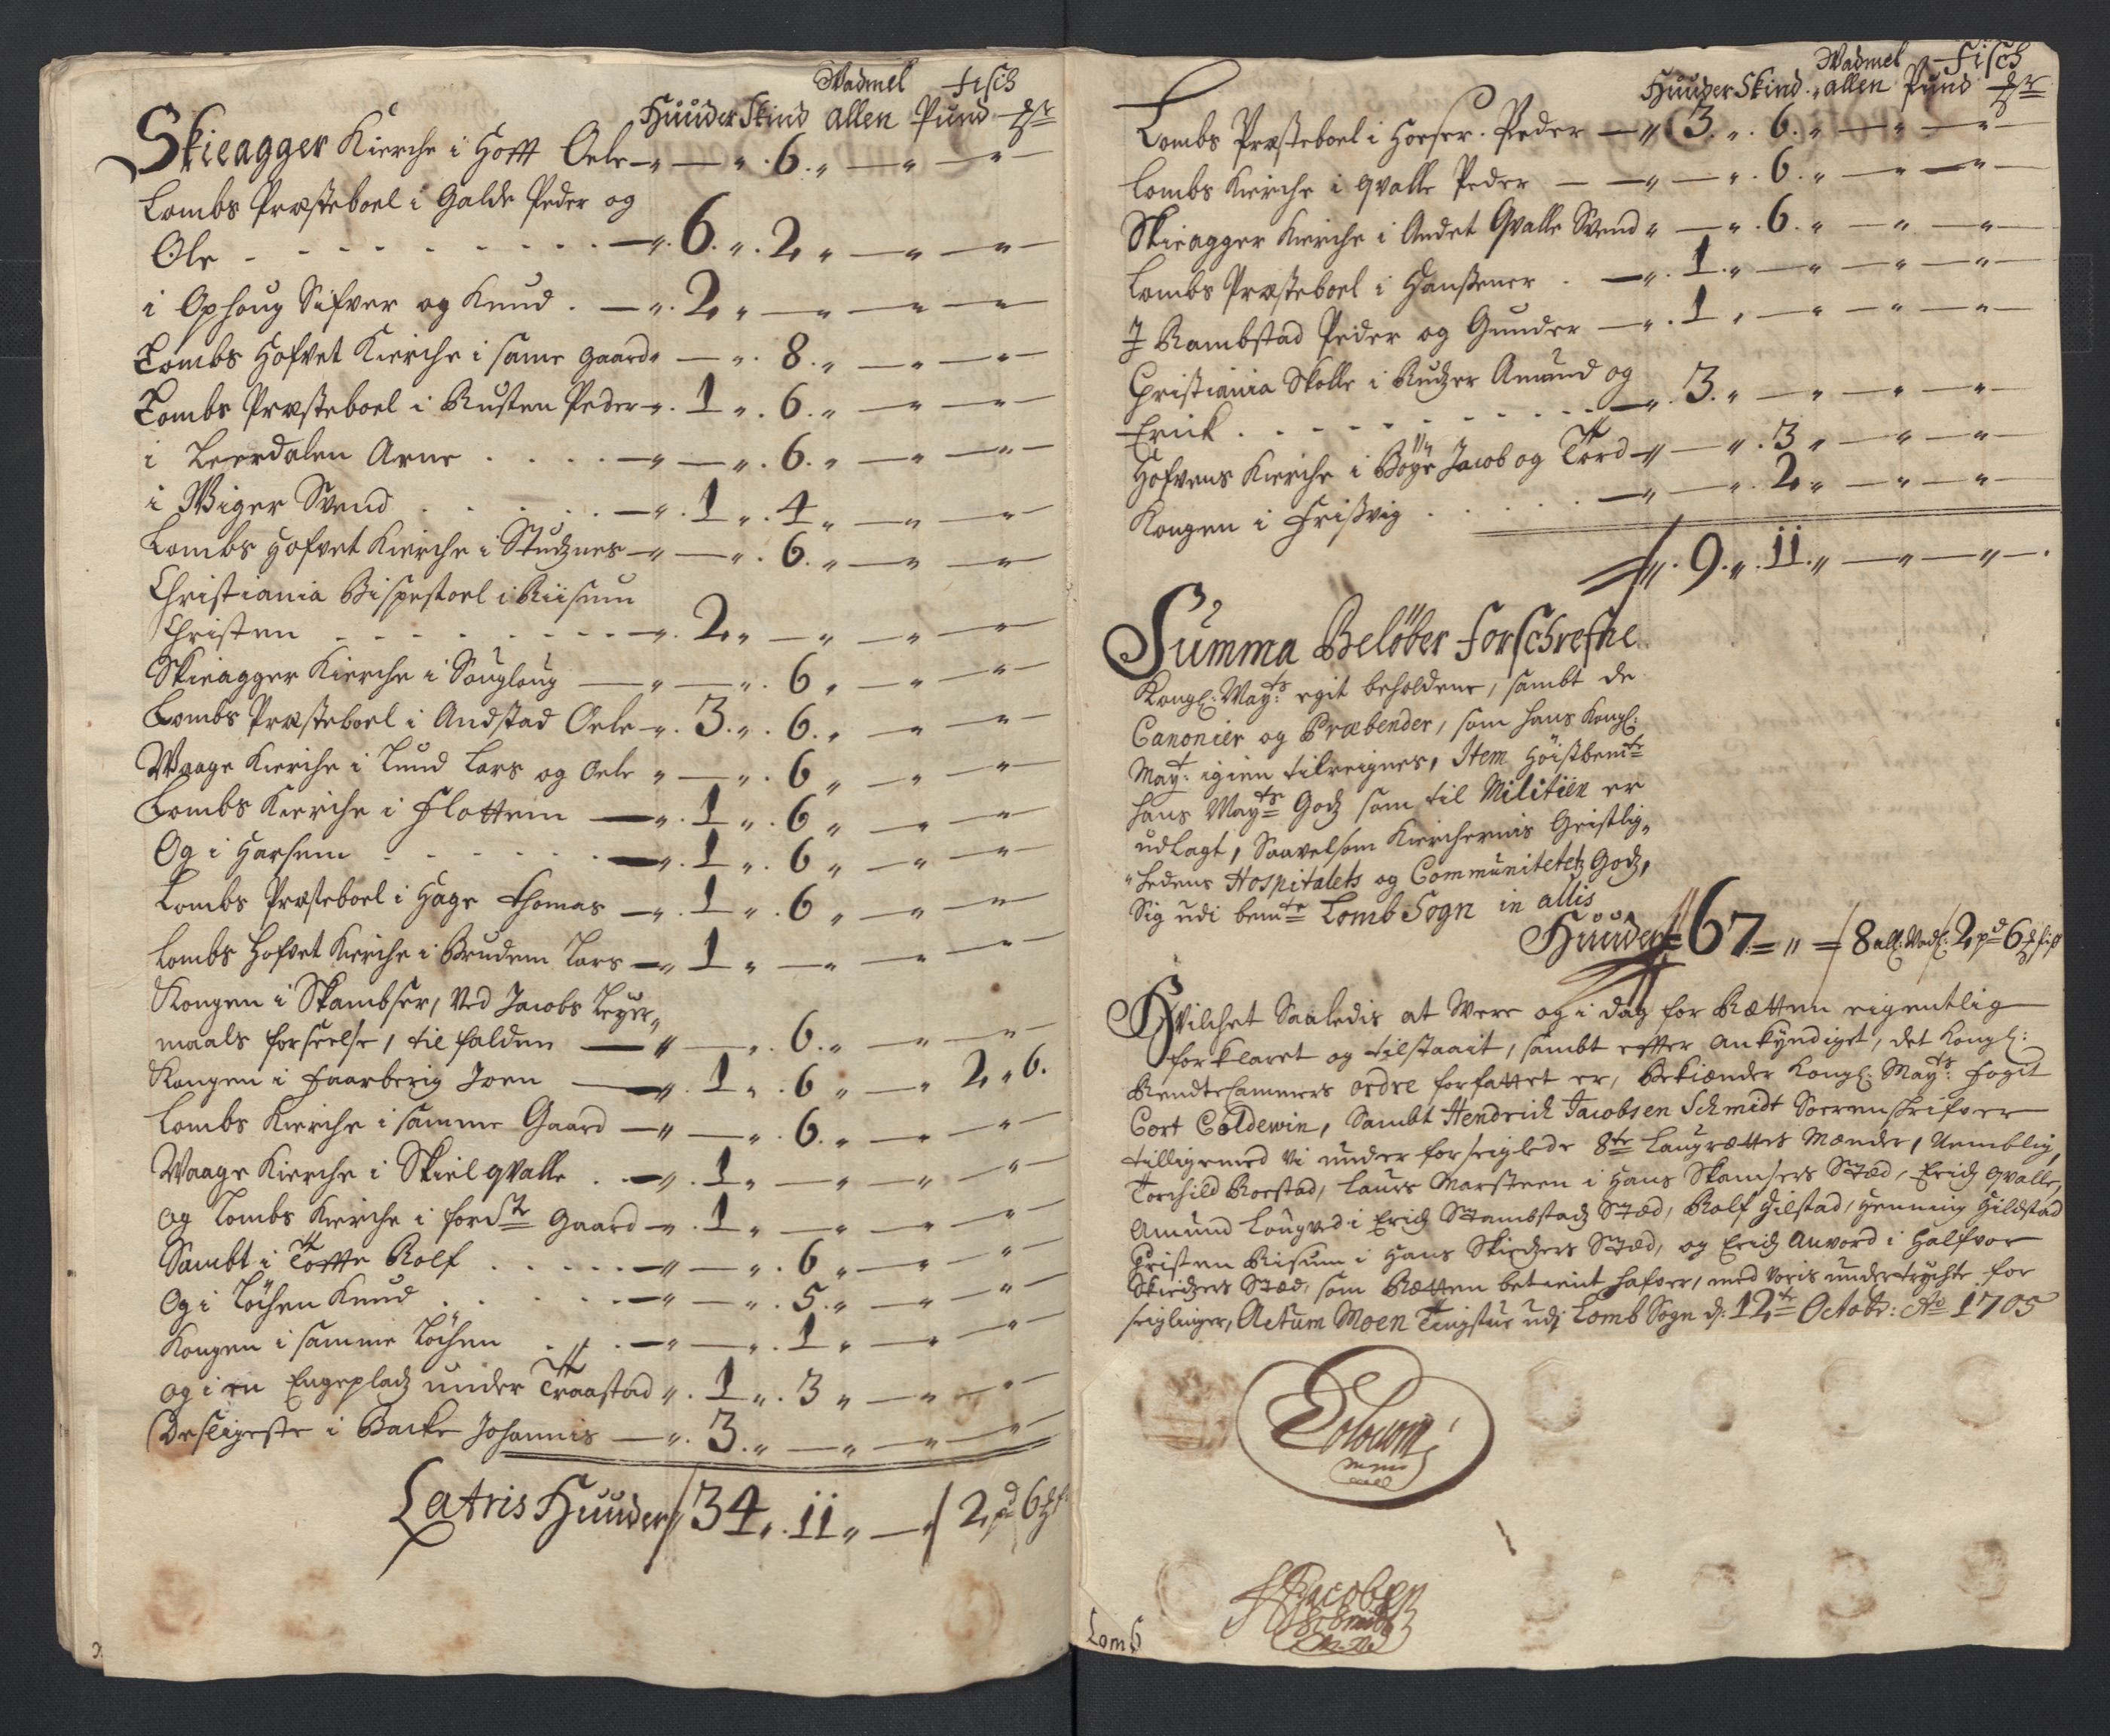 Wadmel fisch
Huuder Skind allen Pund
Skieagger Kierche i Hoff Oele — „ — „ . 6 . „ — „ — „ —
Lombs Præsteboel i Galde Peder og
Ole - - - - — „ . 6 . „ . 2 „ — „ — „ —
i Ophoug Sifver og Knud . — „ . 2 „ — „ — „ — „ —
Lombs Hofvet Kierche i samme gaard „ — „ . 8 . „ — „ — „ —
Lombs Præsteboel i Rusten Peder — „ . 1 „ . 6 . „ — „ — „ —
i Leerdalen Arne . . . . — „ — „ . 6 . „ — „ — „ —
i Wiger Svend . . . . — „ . 1 „ . 4 „ — „ — „ —
Lombs Hofvet Kierche i Studznes — „ — „ . 6 . „ — „ — „ —
Christiania Bispestoel i Riisum
Christen - - - - — „ . 2 „ — „ — „ — „ —
Skieagger Kierche i Sougloug — „ — „ . 6 „ — „ — „ —
Lombs Præsteboel i Andstad Oele — „ . 3 . „ . 6 . „ — „ — „ —
Waage Kierche i Lund Lars og Oele „ — „ . 6 „ — „ — „ —
Lombs Kierche i Flottem — „ . 1 „ . 6 „ — „ — „ —
Og i Harsem - - - - — „ . 1 „ . 6 „ — „ — „ —
Lombs Præsteboel i Hage Thomas — „ . 1 „ . 6 „ — „ — „ —
Lombs Hofvet Kierche i Brudem Lars — „ 1 „ — „ — „ — „ —
Kongen i Skambser, Ved Jacobs Leyer„
maals forseelse, til falden — „ — „ . 6 . „ — „ — „ —
Kongen i Faarberig Joen — „ . 1 „ . 6 „ — „ 2 „ 6 .
Lombs Kierche i samme Gaard — „ — „ . 6 . „ — „ — „ —
Waage Kierche i Skielqvalle . . — „ . 1 „ — „ — „ — „ —
og Lombs Kierche i fordte Gaard — „ . 1 „ — „ — „ — „ —
Sambt i Toffte Rolf . . . . — „ — „ . 6 „ — „ — „ —
Og i Löchen Knud . . . . — „ — „ . 5 . „ — „ — „ —
Kongen i samme Löchen . . . — „ — „ . 1 „ — „ — „ —
og i en Engepladz under Traastad „ . 1 „ . 3 „ — „ — „ —
Desligeste i Backe Johannis — „ . 3 . „ — „ — „ — „ —
Latris Huuder / 34 „ . 11 „ — „ / 2 pd 6
Wadmel fisch
Huuder Skind allen Pund
Lombs Præsteboel i Horser . Peder — „ 3 . „ . 6 . „ — „ — „ —
Lombs Kierche i qvalle Peder — — „ — „ . 6 . „ — „ — „ —
Skieagger Kierche i Andet Qvalle Svend „ — „ . 6 . „ — „ — „ —
Lombs Præsteboel i Hanstener . — „ . 1 . „ — „ — „ — „ —
I Rambstad Peder og Gunder — „ . 1 „ — „ — „ — „ —
Christiania Skolle i Rudzer Amund og
Erick . - - - - — „ . 3 . „ — „ — „ — „ —
Hofvens Kierche i Böye Jacob og Tord — „ — „ . 3 „ — „ — „ —
Kongen i Frisvig . . . . — „ — „ . 2 „ — „ — „ —
„ . 9 . „ . 11 . „ — „ — „ — .
Summa Beløber forschrefne
Kongl: Mayts: egit beholdene, sambt de
Canonier og Præbender, som hans Kongl:
Mayt: igien tilreignes, Item Höistbemte
hans Mayts Godz som til Militien er
udlagt, Saavelsom Kierchernis Geistlig„
„hedens Hospitalets og Communitetetz Godz,
Sig udi bemte Lomb Sogn in allis
Huuder 67 = „ = / 8 all: Vadl: / 2 pd 6
Hvilchet Saaledis at Were og i dag for Rætten eigentlig
forklaret og tilstaait, sambt effter ankyndiget, det Kongl:
RendteCammers ordre forfattet er, Bekiænder Kongl: Mayts: fogit
Cort Coldewin, Sambt Hendrich Jacobsen Schmidt Sorenskrifver
tilligemed vi under forseiglede 8te Laugrættes Mænder, Nemblig,
Torchild Roestad, Laurs Marsteen i Hans Skamsers Stæd, Erich qvalle,
Amund Lougved i Erich Stambstadz Stæd, Rolf Gilstad, Henning Gildstad
Christen Risum i Hans Skiedzers Stæd, og Erich Anvord i Halfvor
Skiedzers Stæd, som Rætten betient hafver, med voris undertrychte for
seiglinger, Actum Moen Tingstue udj Lomb Sogn d: 12te Octobr: Ao 1705
HJacobsen
Schmidt
Lomb